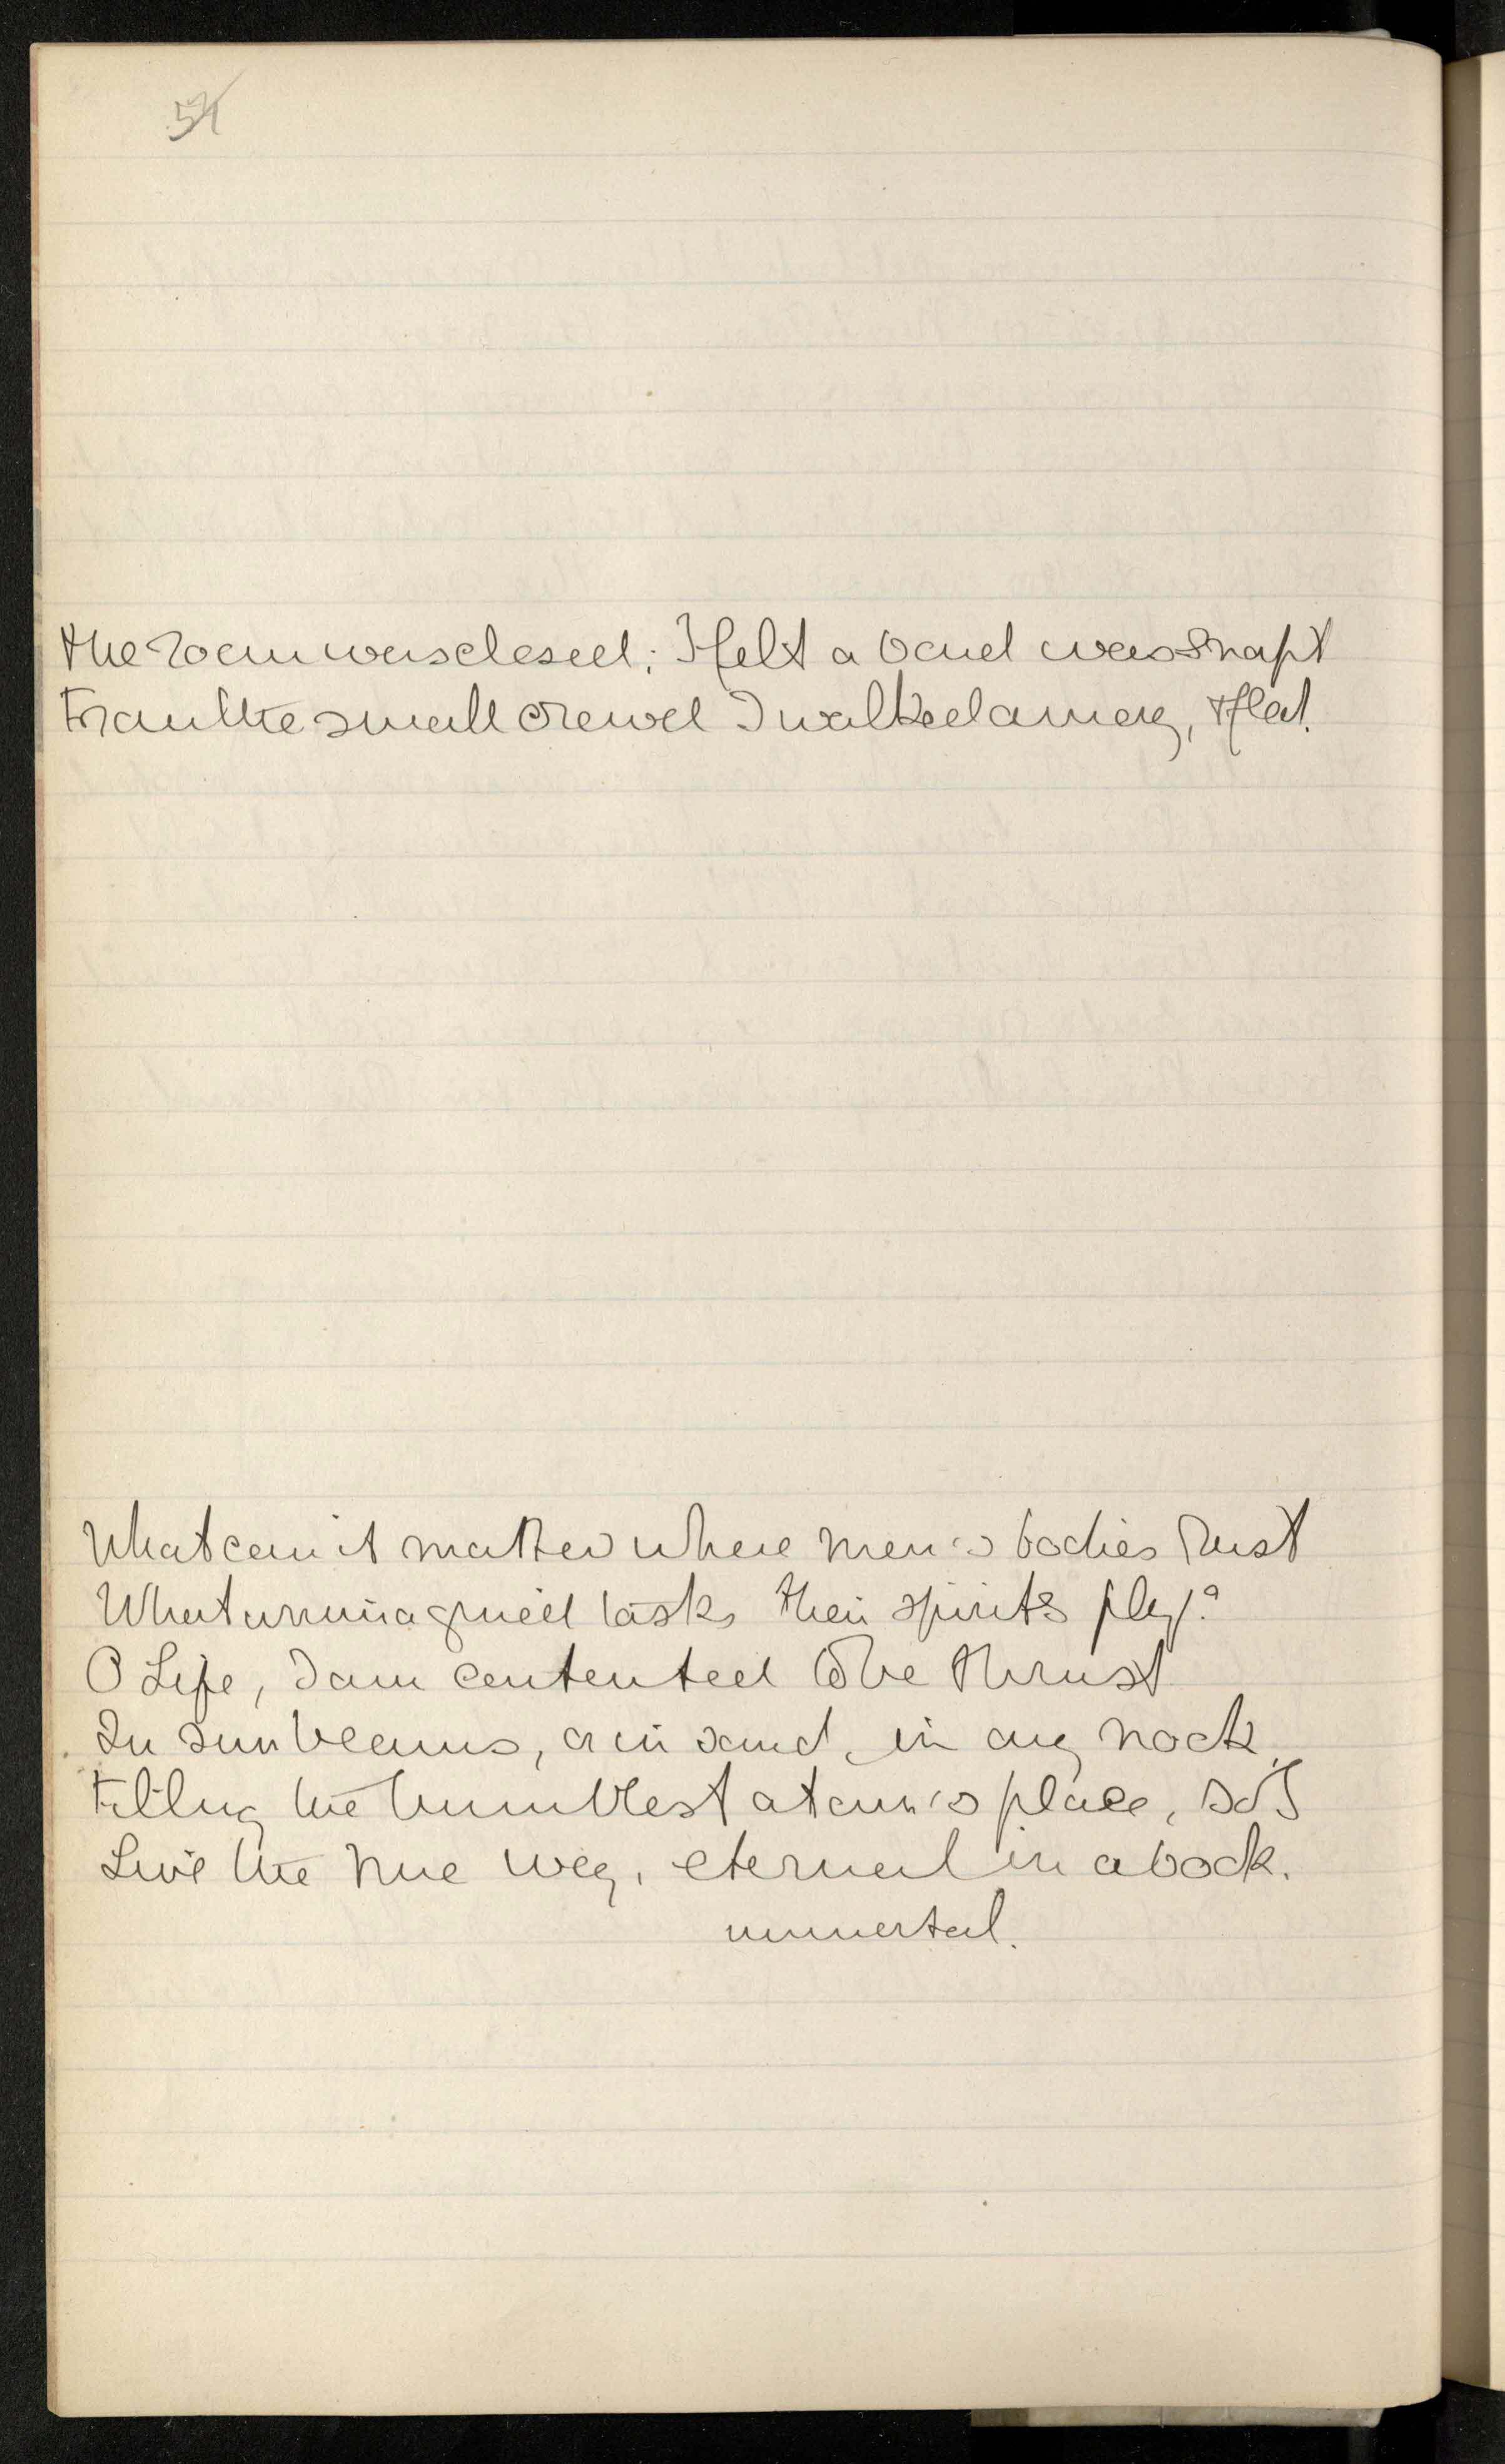 54
the room was closed; I felt a bond was snapt
From the small crowd I walked among, & fled.
What can it matter where men's bodies rust
What unimagined tasks their spirits ply?
O Life, I am contented to be thrust
In sunbeams, or in sand, in any nook.
Filling the humblest atom's place, so I
Live the true way, eternal in a book.
immortal.